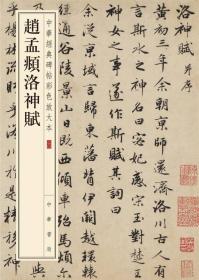 洛神賦 并序
黃初三年余朝京師還濟洛川古人有
言斯水之神名曰宓妃感宋玉對楚王
神女之事遂作斯賦其詞曰
余從京域言歸東藩背伊闕越轘
轅經通谷陵景山日既西傾車殆馬煩
中華經典碑帖彩色放大本
趙孟頫洛神賦
中華書局